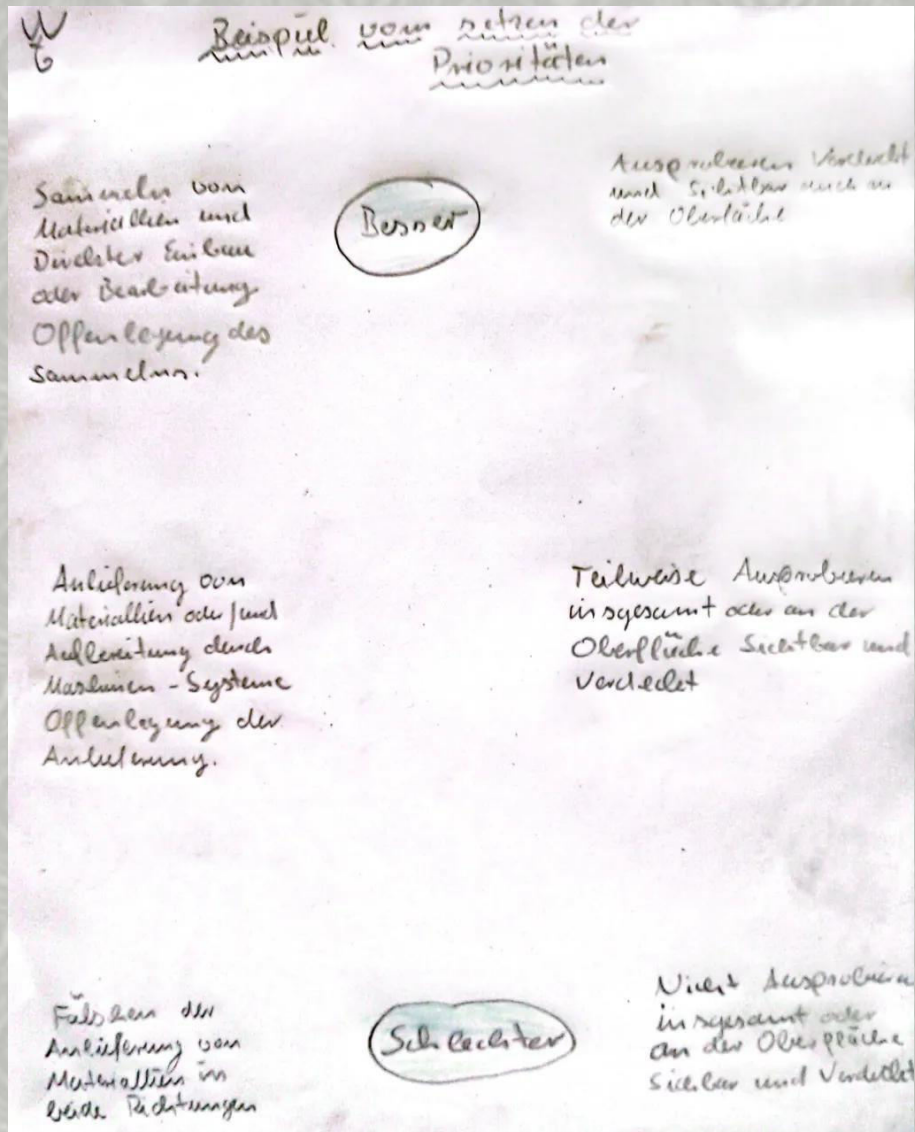 Beispiel vom setzen der
Prioritäten
Sammeln vom
Materiallien und
Direkter Einbau
oder Bearbeitung
Offenlegung des
Sammelns.
Besser
Ausprobieren Verdeckt
und Sichtbar auch an
der Oberfläche
Anlieferung von
Materiallien oder/und
Aufbereitung durch
Maschinen-Systeme
Offenlegung der
Anlieferung.
Teilweise Ausprobieren
insgesamt oder an der
Oberfläche Sichtbar und
Verdeckt
Fälschen der
Anlieferung von
Materiallien in
beide Richtungen
Schlechter
Nicht Ausprobieren
insgesamt oder
an der Oberfläche
Sichbar und Verdeckt